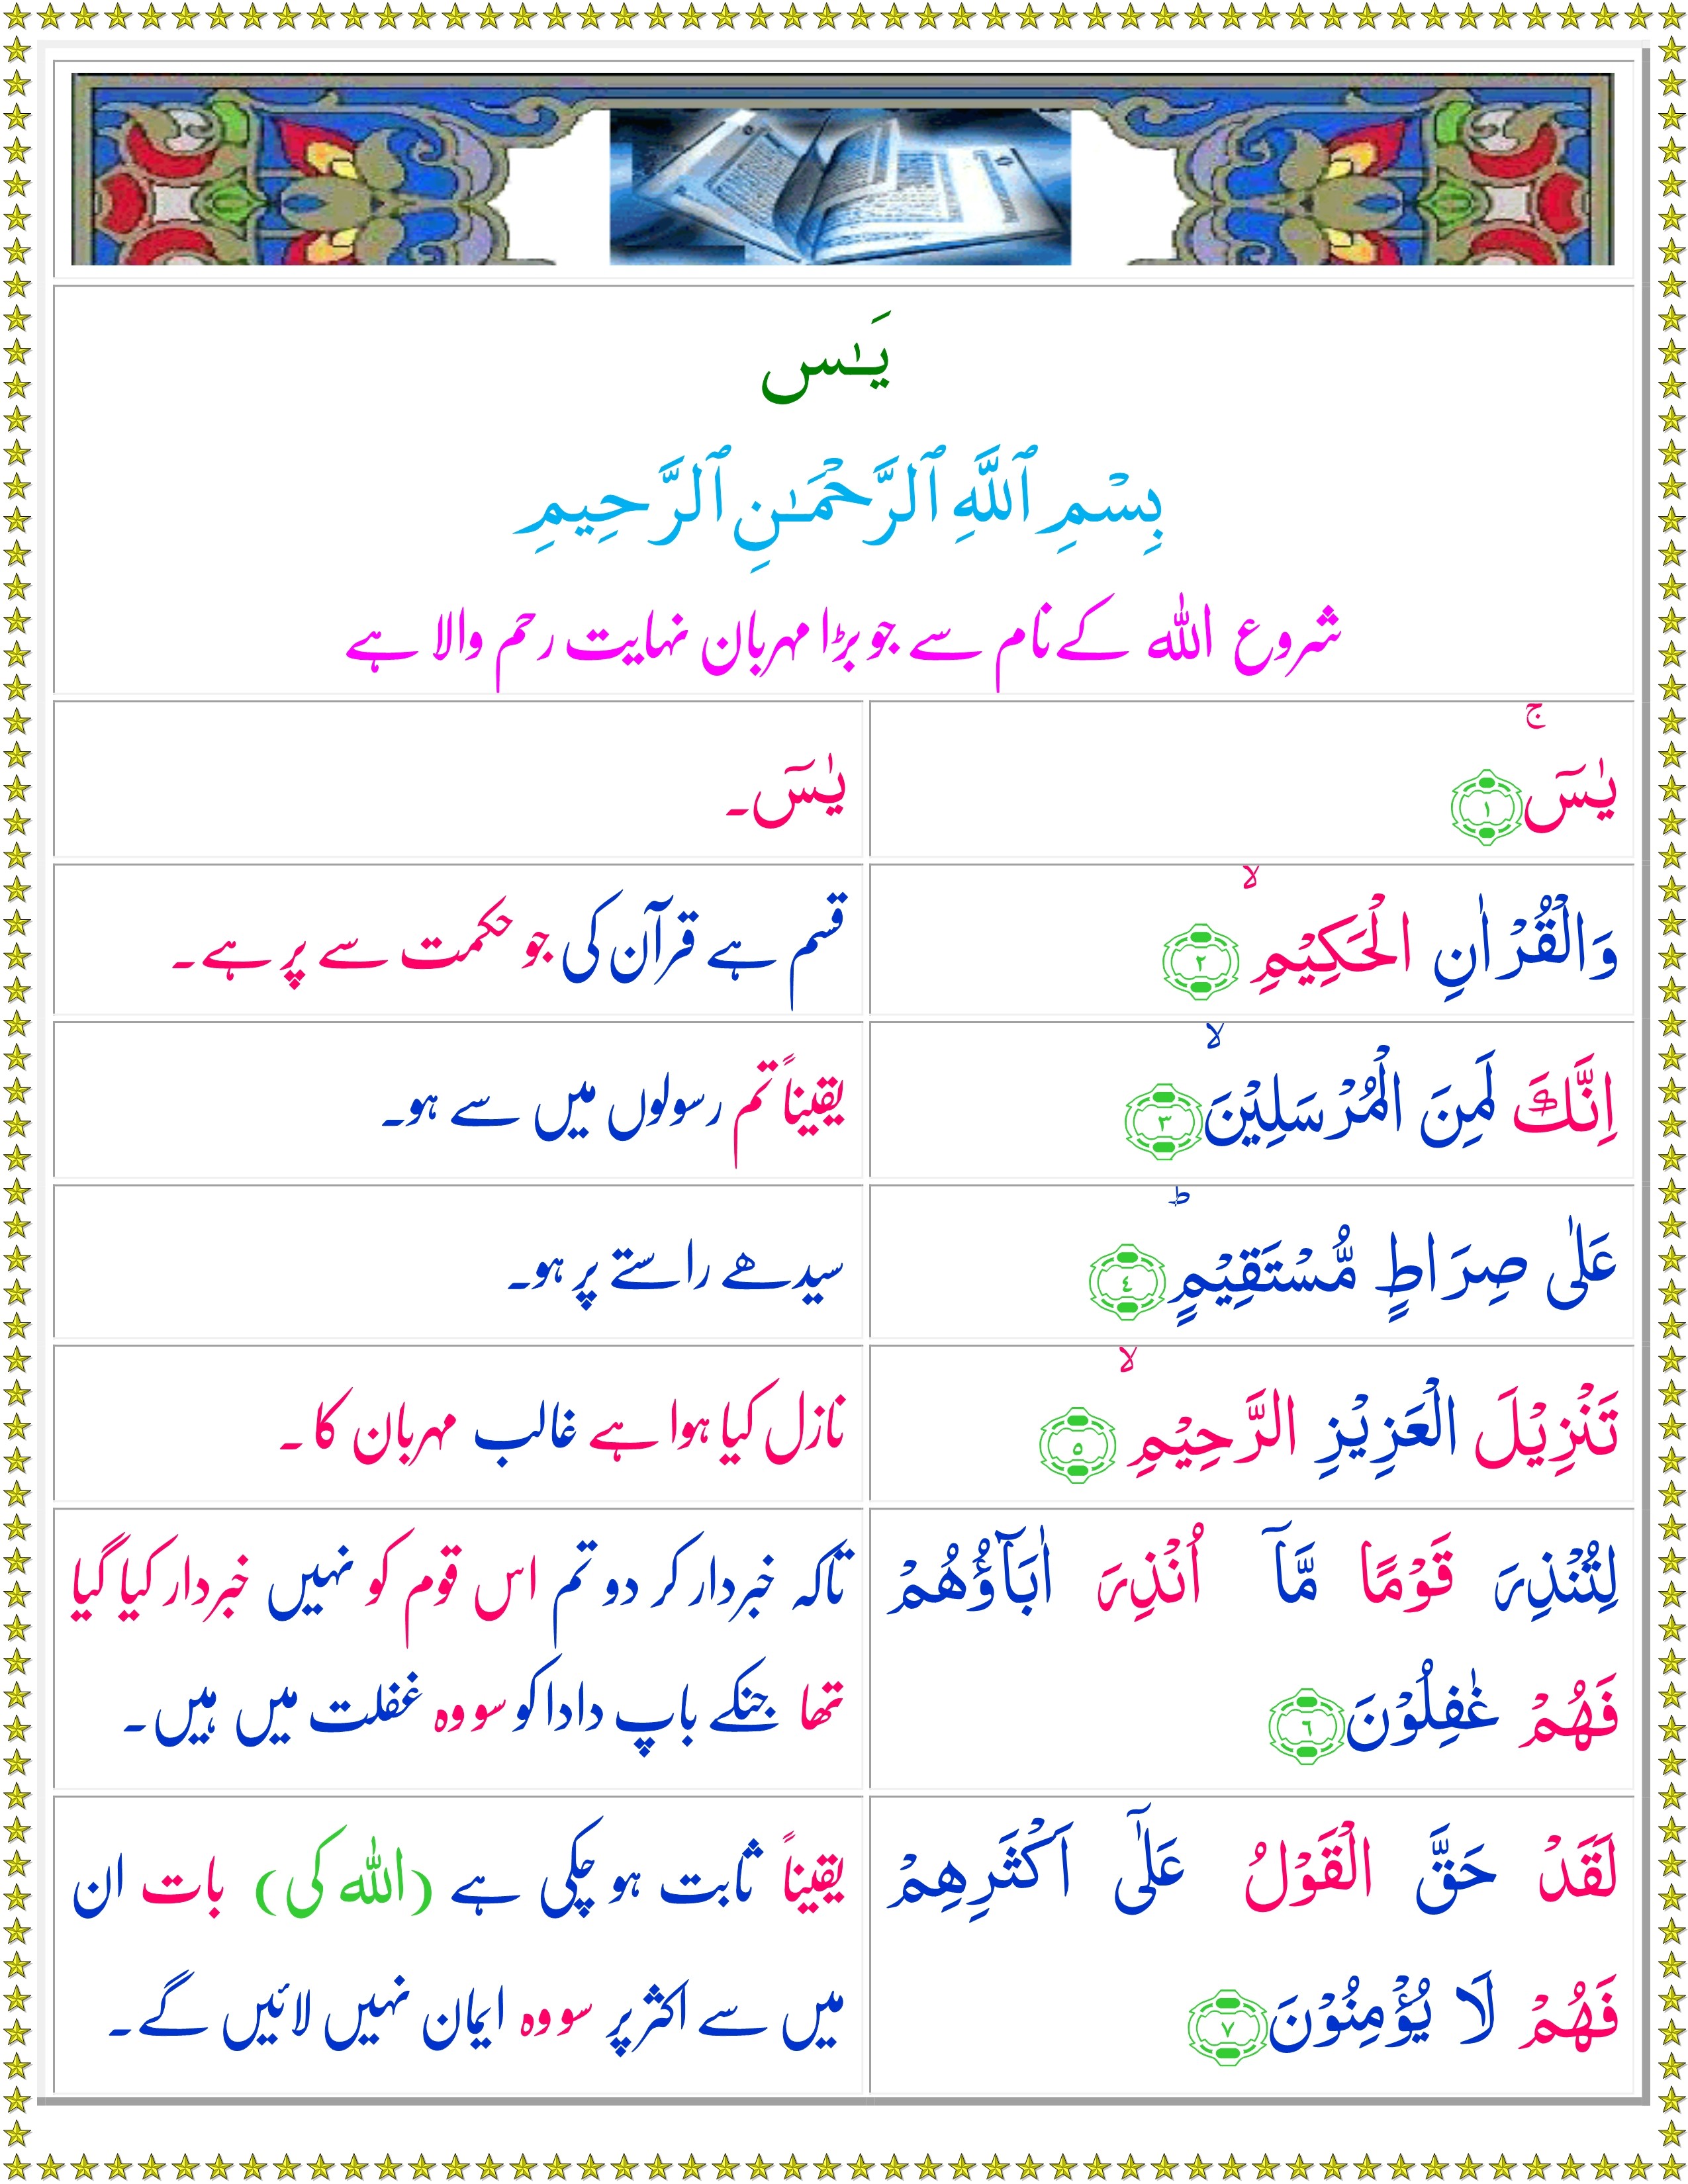 يَـٰس
بِسْمِ ٱللَّهِ ٱلرَّحْمَـٰنِ ٱلرَّحِيمِ
شروع اللہ کے نام سے جو بڑا مہربان نہایت رحم والا ہے
يٰسٓ ۚ ﴿۱﴾
یٰسٓ۔
وَالْقُرْاٰنِ الْحَكِيْمِ ۙ ﴿۲﴾
قسم ہے قرآن کی جو حکمت سے پر ہے۔
اِنَّكَ لَمِنَ الْمُرْسَلِيْنَ ۙ ﴿۳﴾
یقیناً تم رسولوں میں سے ہو۔
عَلٰى صِرَاطٍ مُّسْتَقِيْمٍ ؕ ﴿٤﴾
سیدھے راستے پر ہو۔
تَنْزِيْلَ الْعَزِيْزِ الرَّحِيْمِ ۙ ﴿٥﴾
نازل کیا ہوا ہے غالب مہربان کا۔
لِتُنْذِرَ قَوْمًا مَّاۤ اُنْذِرَ اٰبَآؤُهُمْ
فَهُمْ غٰفِلُوْنَ ﴿٦﴾
تاکہ خبردار کر دو تم اس قوم کو نہیں خبردار کیا گیا
تھا جنکے باپ دادا کو سو وہ غفلت میں ہیں۔
لَقَدْ حَقَّ الْقَوْلُ عَلٰٓى اَكْثَرِهِمْ
فَهُمْ لَا يُؤْمِنُوْنَ ﴿۷﴾
یقیناً ثابت ہو چکی ہے (اللہ کی) بات ان
میں سے اکثر پر سو وہ ایمان نہیں لائیں گے۔